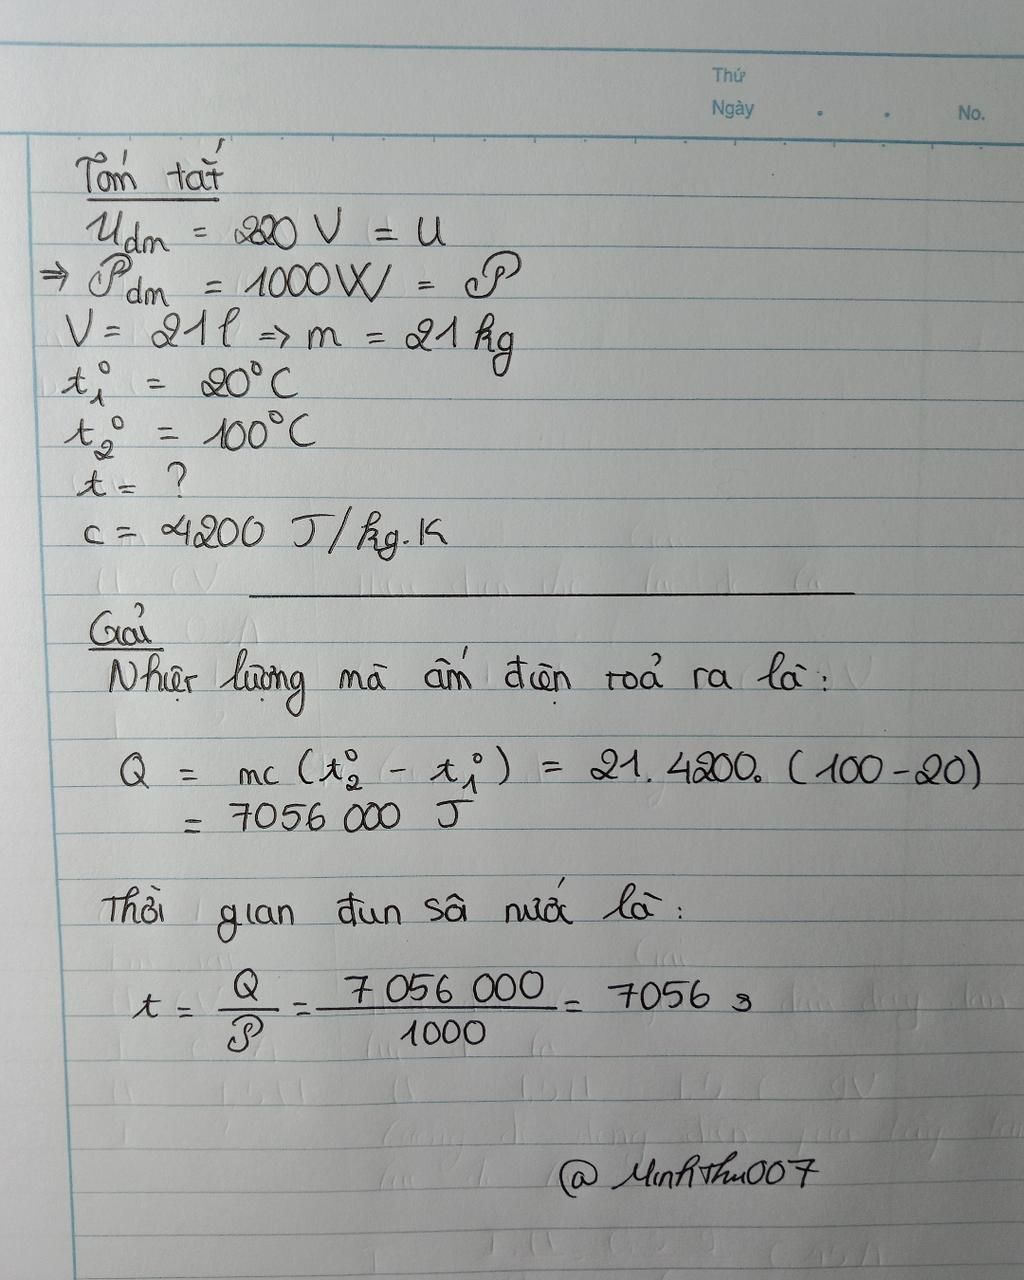 Thứ
Ngày . . No.
Tóm tắt
Uđm = 220 V = U
⇒ Pđm = 1000W = P
V = 21 l ⇒ m = 21 kg
t₁° = 20°C
t₂° = 100°C
t = ?
c = 4200 J/kg.K
Giải
Nhiệt lượng mà ấm điện toả ra là:
Q = mc (t₂° - t₁°) = 21. 4200. (100-20)
= 7056 000 J
Thời gian đun sôi nước là:
t = Q/P = 7 056 000/1000 = 7056 s
@ MinhThu007